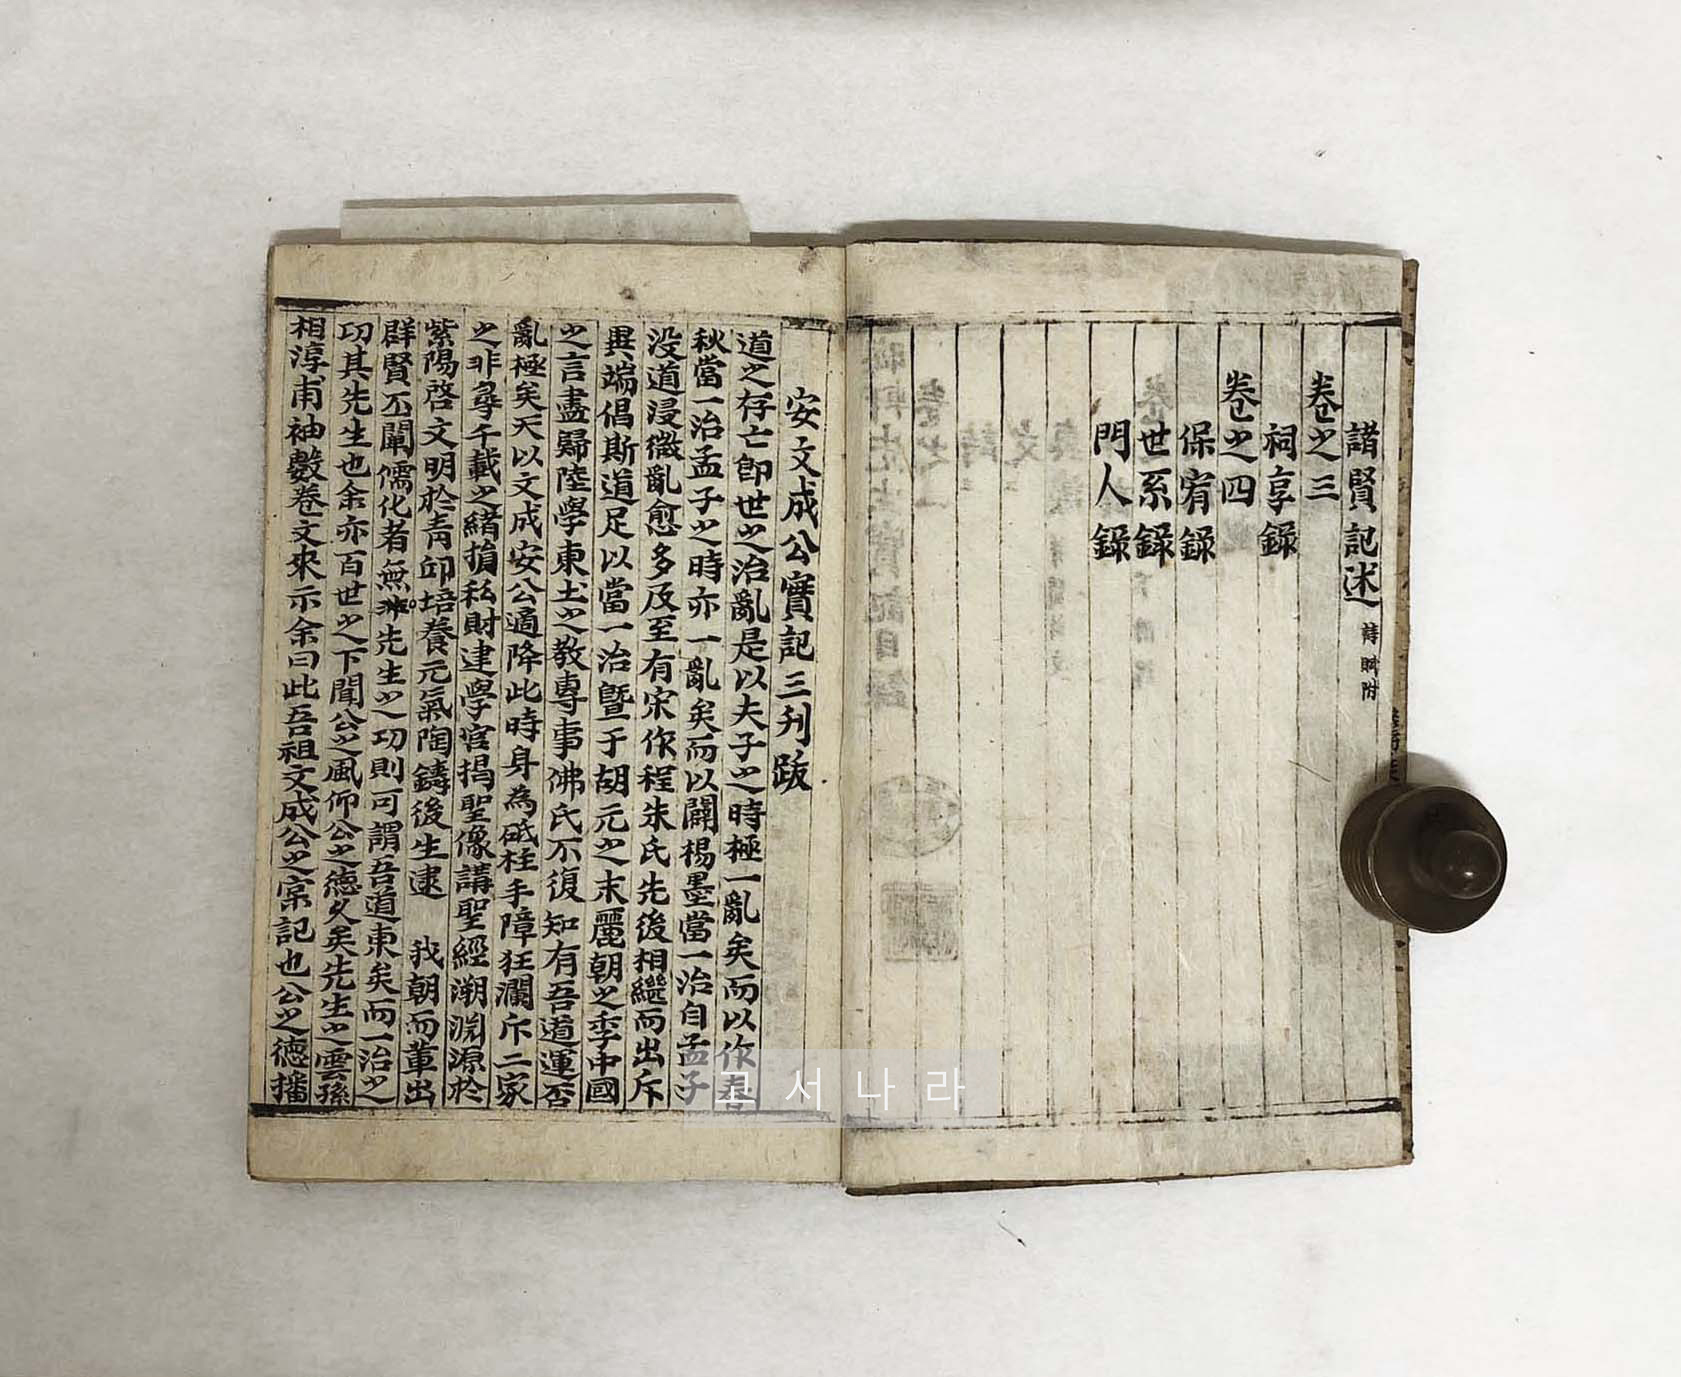 諸賢記述 詩賦附
卷之三
祠享錄
卷之四
保宥錄
世系錄
門人錄
安文成公實記三刊跋
道之存亡卽世之治亂是以夫子之時極一亂矣而以作春
秋當一治孟子之時亦一亂矣而以闢楊墨當一治自孟子
没道浸微亂愈多及至有宋作程朱氏先後相繼而出斥
異端倡斯道足以當一治曁于胡元之末麗朝之季中國
之言盡歸陸學東土之敎專事佛氏不復知有吾道運否
亂極矣天以文成安公適降此時身為砥柱手障狂瀾斥二家
之非尋千載之緖損私財建學宮揭聖像講聖經溯淵源於
紫陽啓文明於靑邱培養元氣陶鑄後生逮 我朝而輩出
群賢丕闡儒化者無非先生之功則可謂吾道東矣而一治之
功其先生也余亦百世之下聞公之風仰公之德久矣先生之雲孫
相淳甫袖數卷文來示余曰此吾祖文成公之宲記也公之德播
고서나라